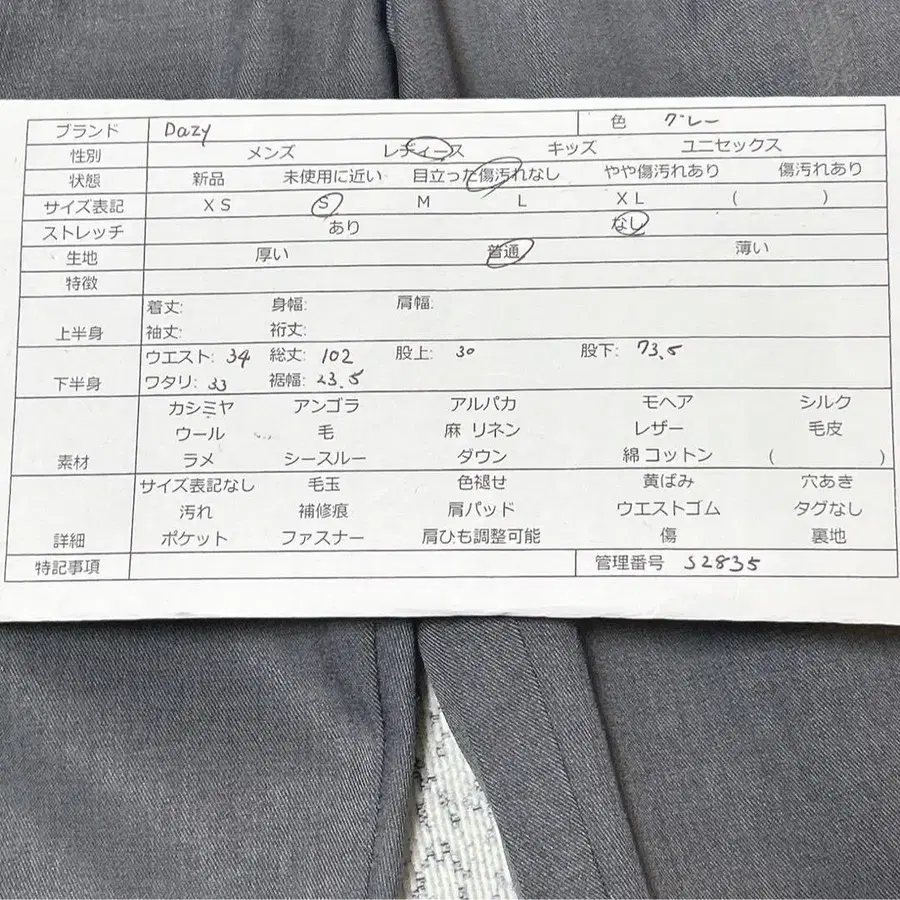 ブランド Dazy 色 グレー
性別 メンズ レディース キッズ ユニセックス
状態 新品 未使用に近い 目立った傷汚れなし やや傷汚れあり 傷汚れあり
サイズ表記 XS S M L XL ( )
ストレッチ あり なし
生地 厚い 普通 薄い
特徴
上半身 着丈: 身幅: 肩幅:
袖丈: 裄丈:
下半身 ウエスト: 34 総丈: 102 股上: 30 股下: 73.5
ワタリ: 33 裾幅: 23.5
素材 カシミヤ アンゴラ アルパカ モヘア シルク
ウール 毛 麻 リネン レザー 毛皮
ラメ シースルー ダウン 綿 コットン ( )
詳細 サイズ表記なし 毛玉 色褪せ 黄ばみ 穴あき
汚れ 補修痕 肩パッド ウエストゴム タグなし
ポケット ファスナー 肩ひも調整可能 傷 裏地
特記事項 管理番号 S2835